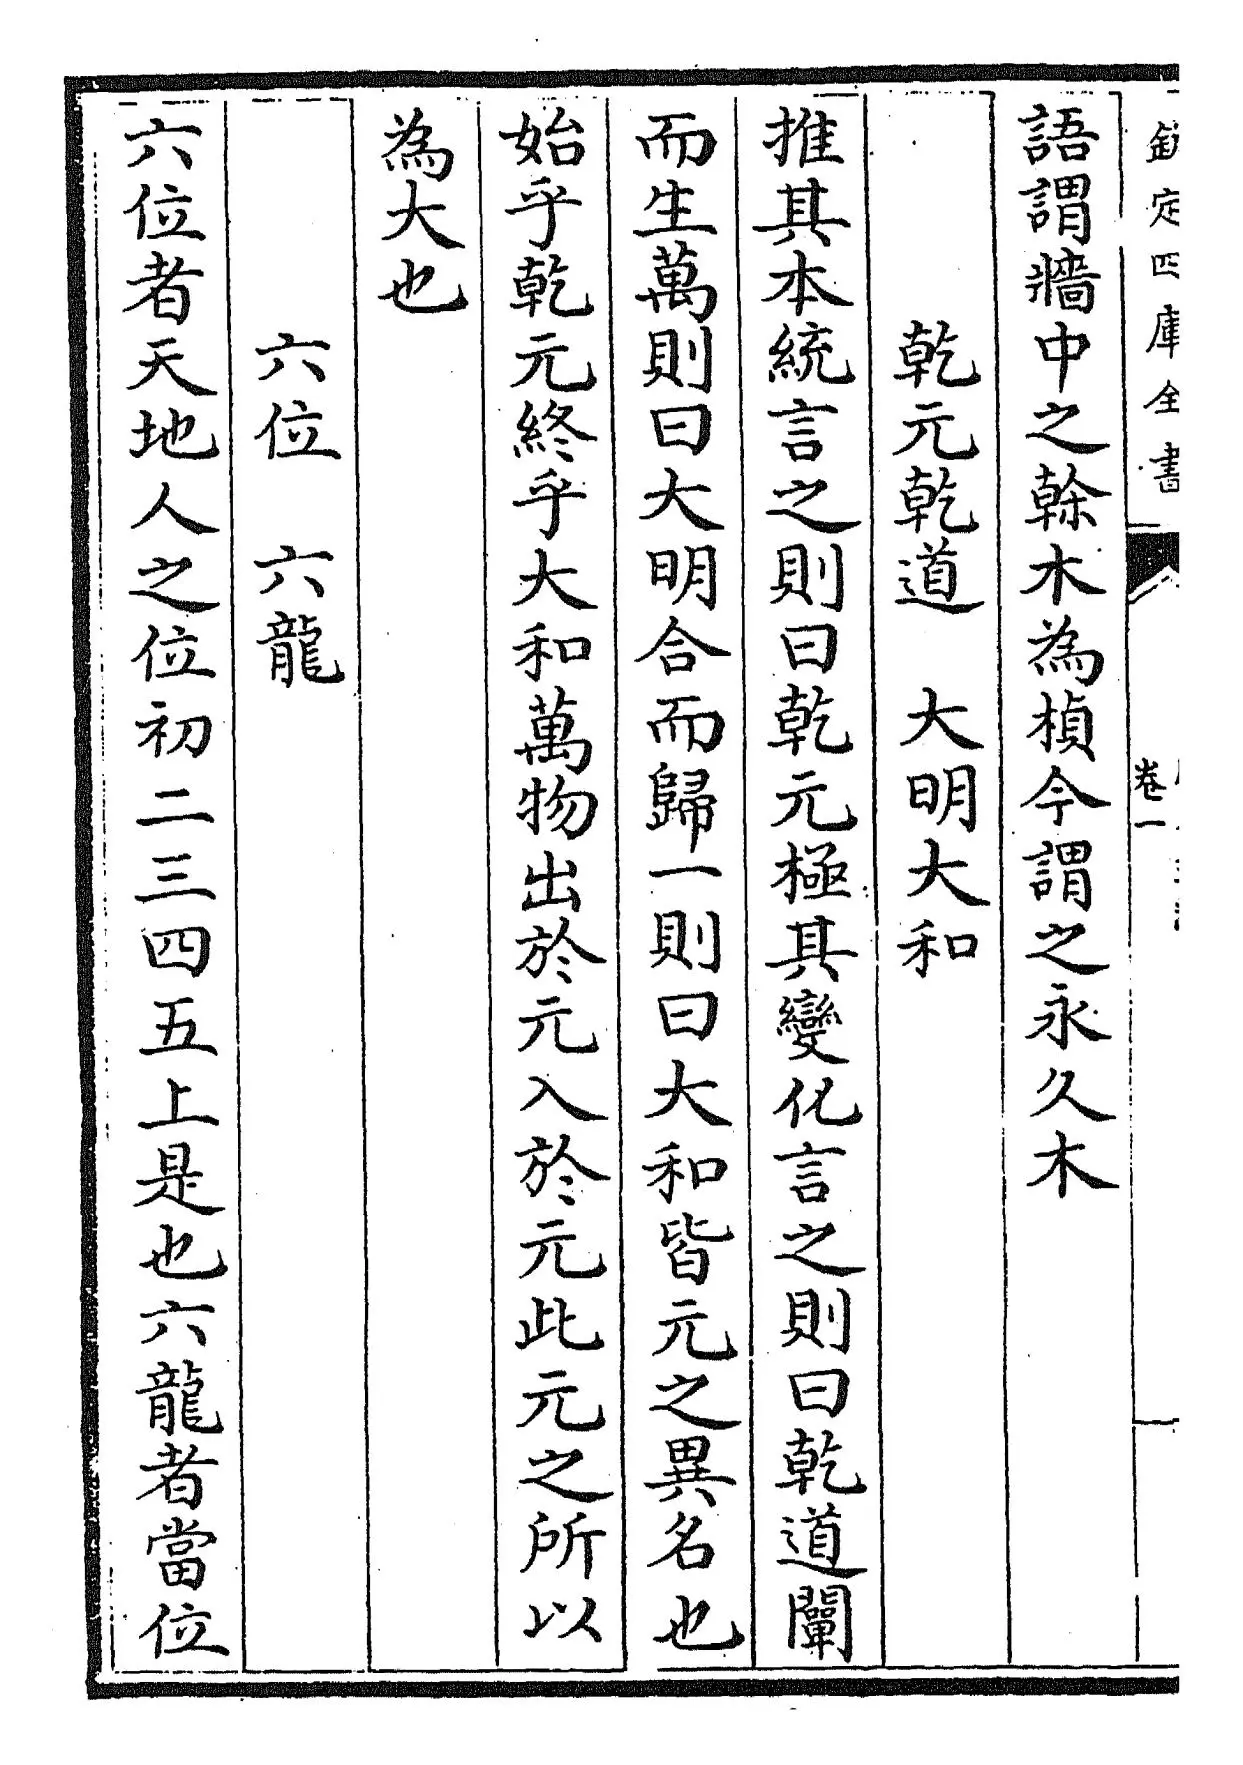 欽定四庫全書
卷一
語謂牆中之榦木為楨今謂之永久木
乾元乾道　大明大和
推其本統言之則曰乾元極其變化言之則曰乾道闡
而生萬則曰大明合而歸一則曰大和皆元之異名也
始乎乾元終乎大和萬物出於元入於元此元之所以
為大也
六位　六龍
六位者天地人之位初二三四五上是也六龍者當位